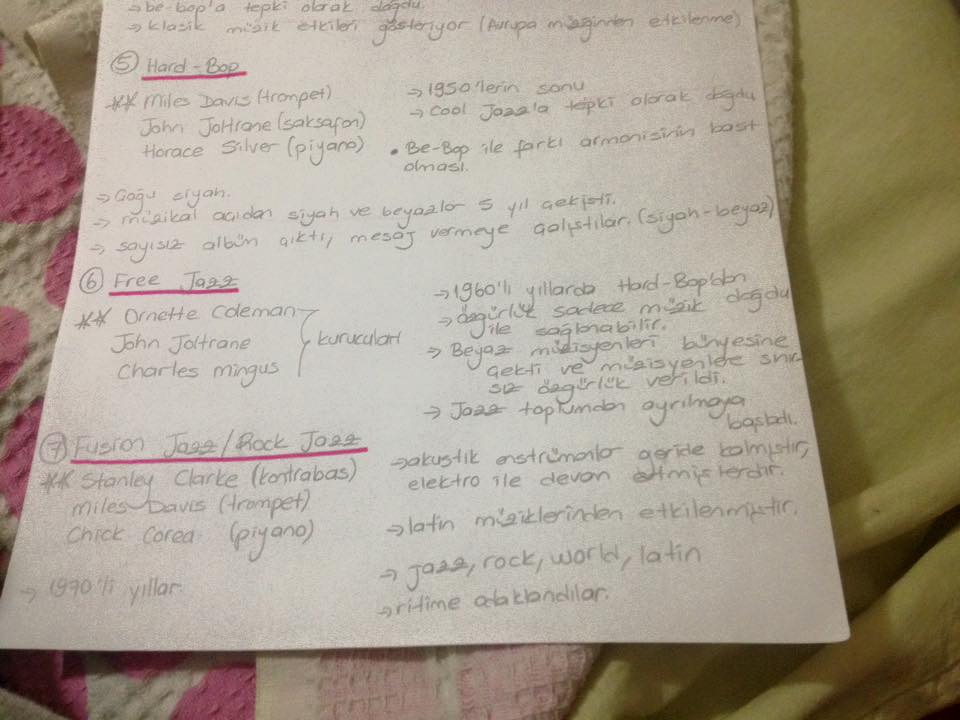 → be-bop'a tepki olarak doğdu
→ klasik müzik etkileri gösteriyor (Avrupa müziğinden etkilenme)
⑤ Hard-Bop
** Miles Davis (trompet)
John Joltrane (saksafon)
Horace Silver (piyano)
→ 1950'lerin sonu
→ cool Jazz'a tepki olarak doğdu
• Be-Bop ile farkı armonisinin basit
olması.
→ Çoğu siyah.
→ müzikal açıdan siyah ve beyazlar 5 yıl çekişti.
→ sayısız albün çıktı, mesaj vermeye çalıştılar. (siyah-beyaz)
⑥ Free Jazz
** Ornette Coleman
John Joltrane
Charles mingus
kurucuları
→ 1960'lı yıllarda Hard-Bop'dan
doğdu
→ özgürlük sadece müzik
ile sağlanabilir.
→ Beyaz müzisyenleri bünyesine
çekti ve müzisyenlere sınır
sız özgürlük verildi.
→ Jazz toplumdan ayrılmaya
başladı.
⑦ Fusion Jazz/Rock Jazz
** Stanley Clarke (kontrabas)
Miles Davis (trompet)
Chick Corea (piyano)
→ 1970'li yıllar
→ akustik enstrümanlar geride kalmıştır,
elektro ile devam etmişlerdir.
→ latin müziklerinden etkilenmiştir.
→ Jazz, rock, world, latin
→ ritime odaklandılar.